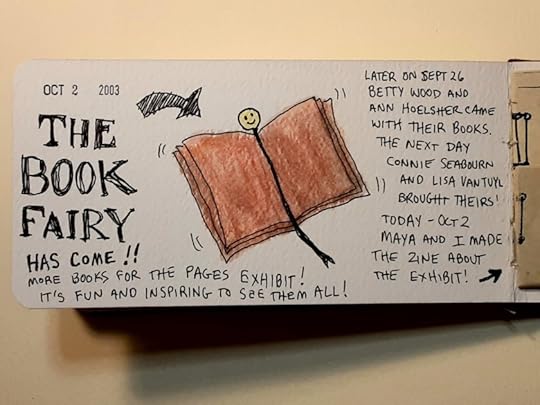 OCT 2 2003
THE
BOOK
FAIRY
HAS COME !!
MORE BOOKS FOR THE PAGES EXHIBIT!
IT'S FUN AND INSPIRING TO SEE THEM ALL!
LATER ON SEPT 26
BETTY WOOD AND
ANN HOELSHER CAME
WITH THEIR BOOKS.
THE NEXT DAY
CONNIE SEABOURN
AND LISA VANTUYL
BROUGHT THEIRS!
TODAY - OCT 2
MAYA AND I MADE
THE ZINE ABOUT
THE EXHIBIT!